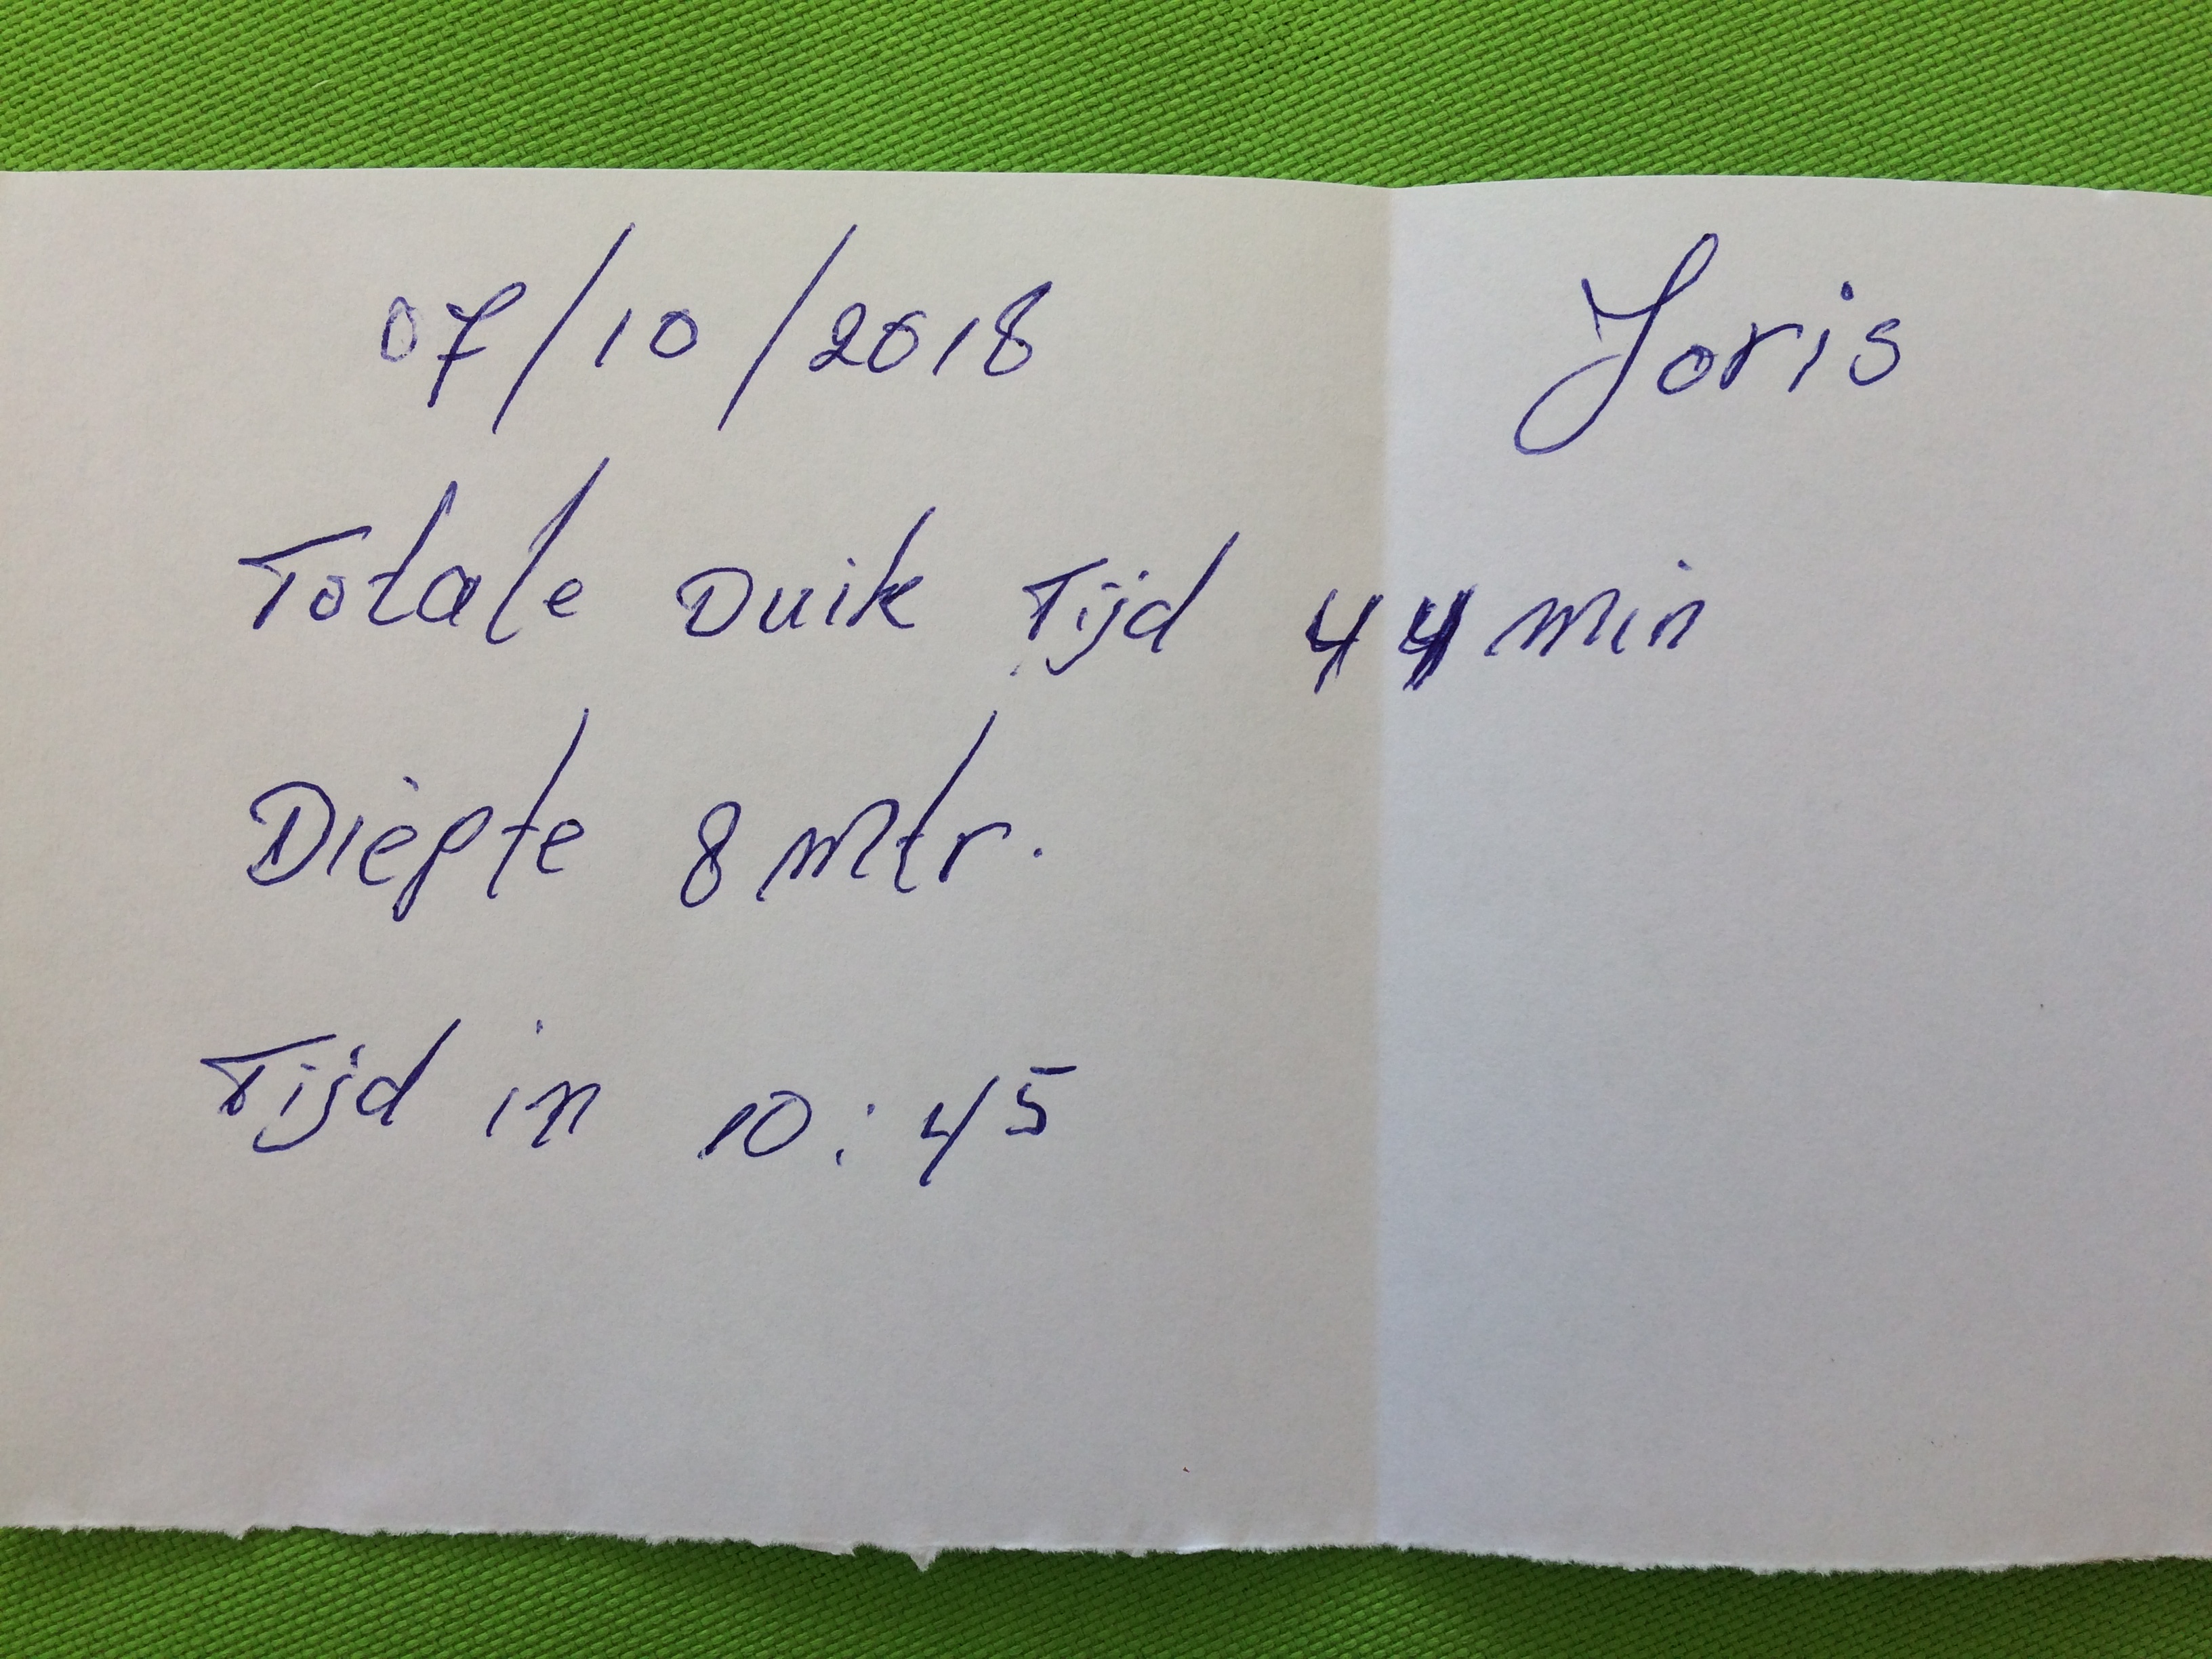 07/10/2018 Joris
Totale Duik Tijd 44 min
Diepte 8 mtr.
Tijd in 10:45